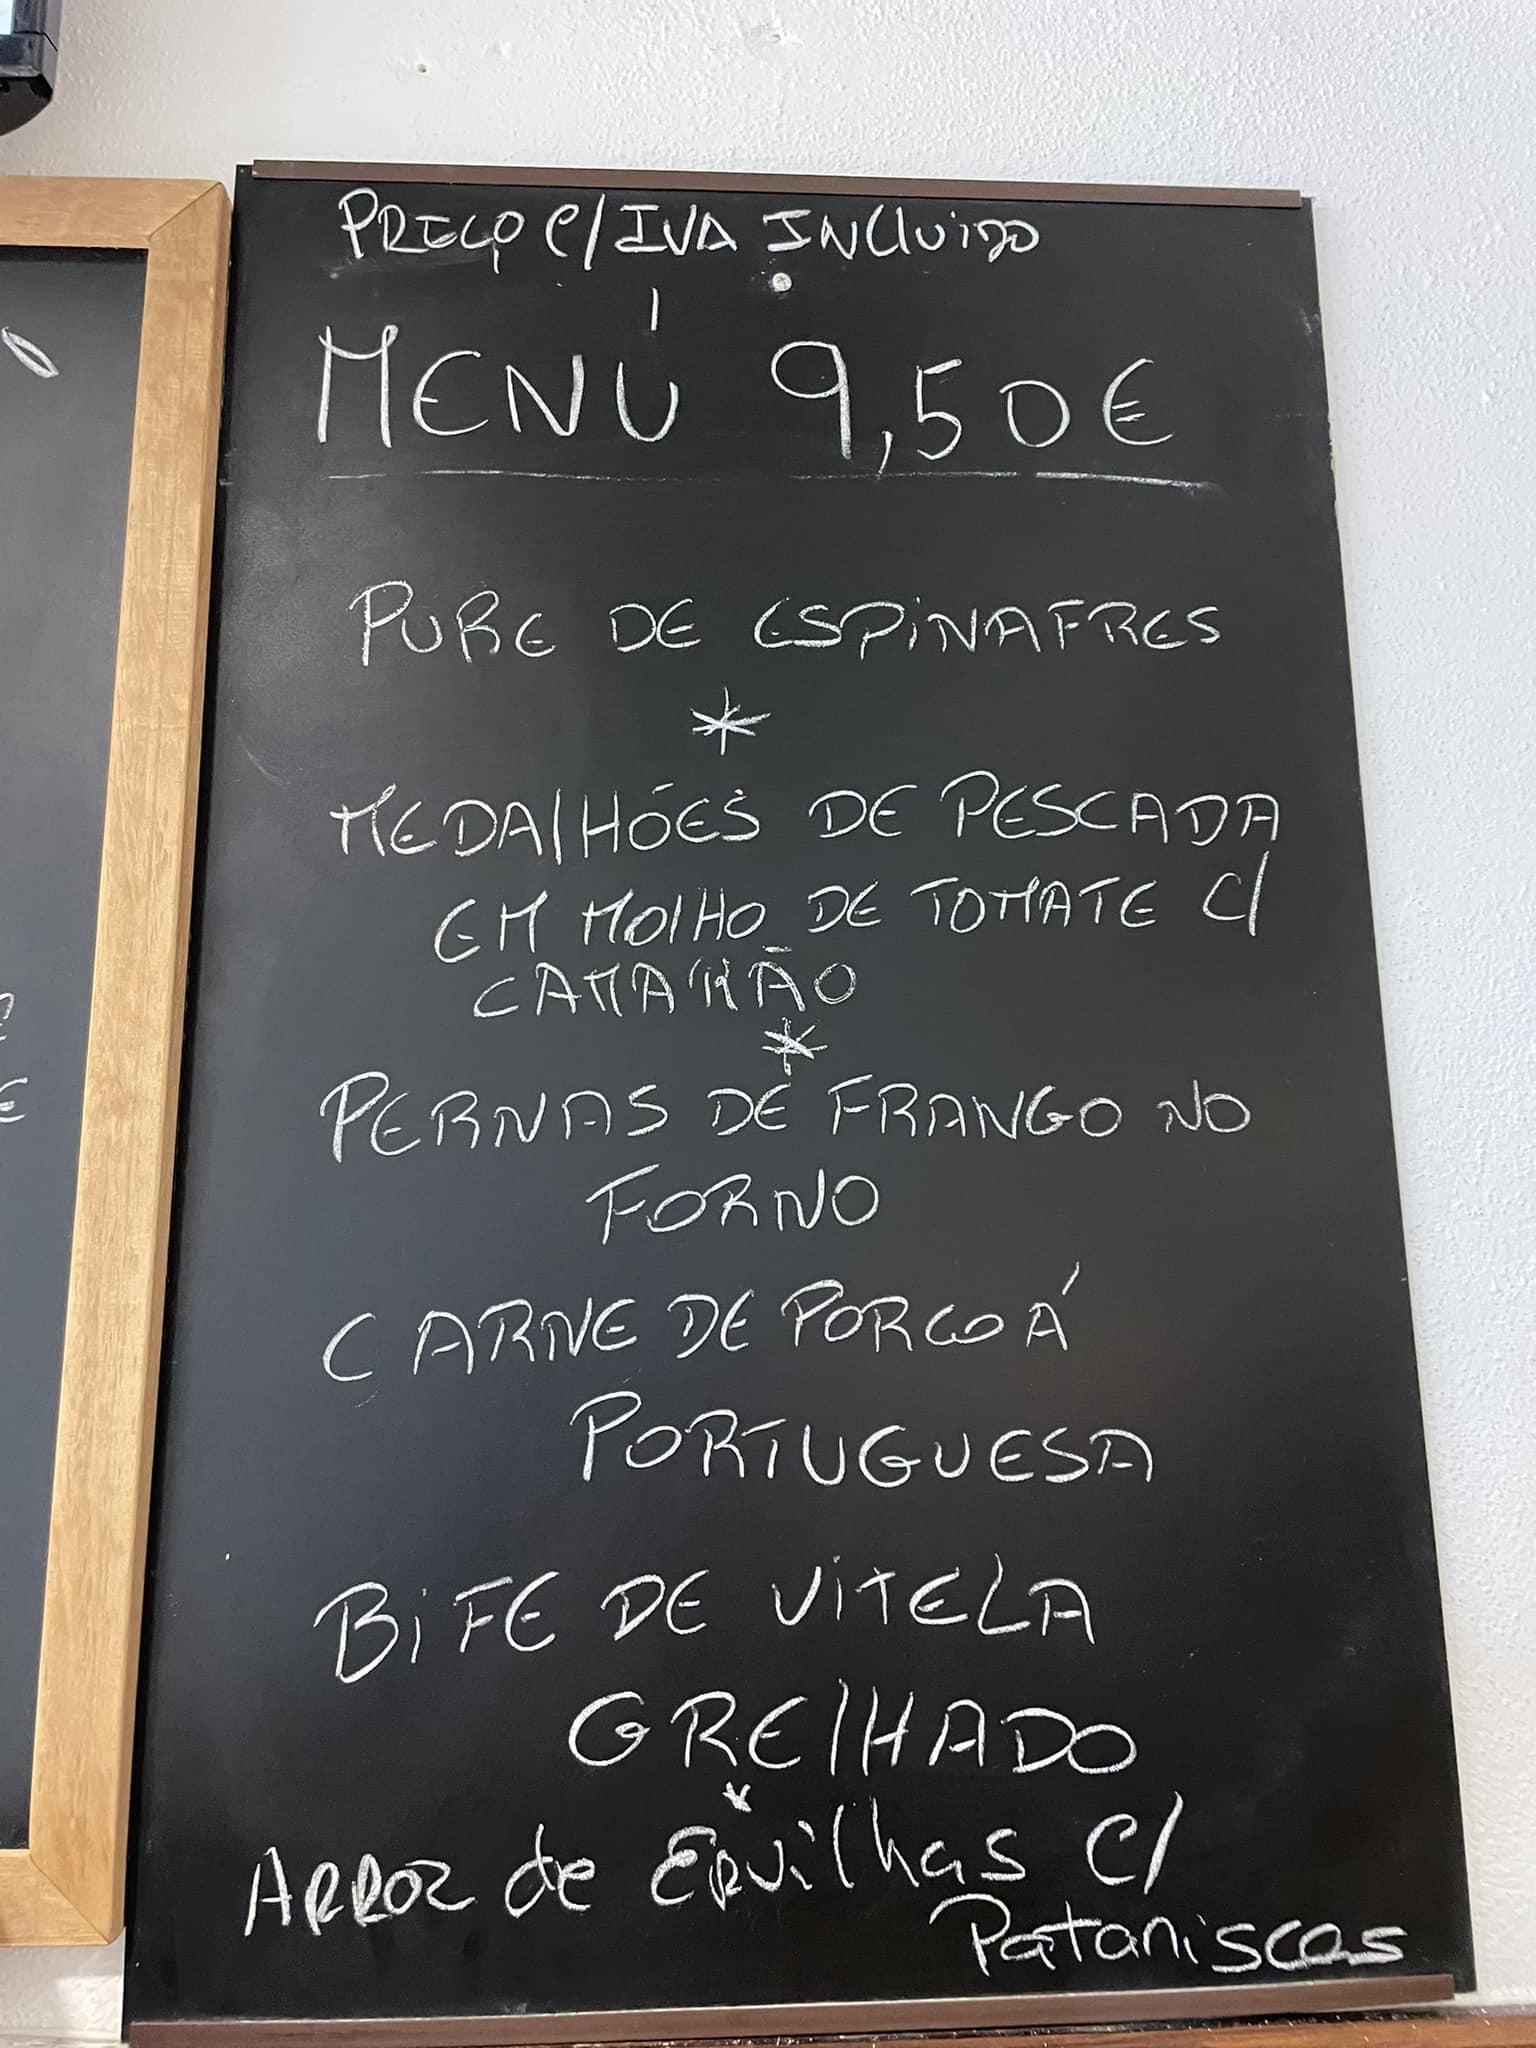 PREÇO C/ IVA INCLUIDO
MENÚ 9,50€
PURE DE ESPINAFRES
*
MEDAlHÓES DE PESCADA
EM MOlHO DE TOMATE C/
CAMARÃO
*
PERNAS DE FRANGO NO
FORNO
CARNE DE PORCO Á
PORTUGUESA
BiFE DE ViTELA
GRElHADO
*
ARROZ de ERvilhas C/
Pataniscas